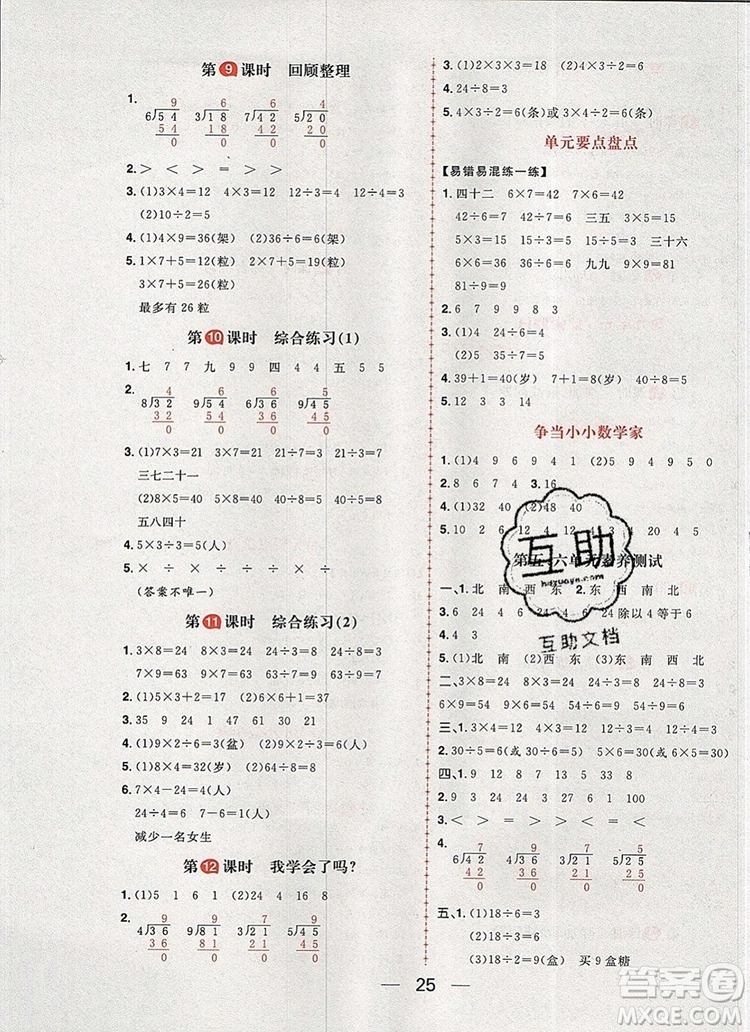 第9课时 回顾整理
1.
9 6 9 4
6)54 4)24 3)27 5)20
54 24 27 20
0 0 0 0
2. > < > = > <
3. (1)3×4=12 4×3=12 12÷4=3
(2)10÷2=5
4. (1)4×9=36(架) (2)36÷6=6(架)
5. 1×7+5=12(粒) 2×7+5=19(粒)
3×7+5=26(粒)
最多有26粒
第10课时 综合练习(1)
1. 七 7 7 九 9 9 四 4 4 五 5 5
2.
4 6 4 5
8)32 9)54 9)36 9)45
32 54 36 45
0 0 0 0
3. (1)3×7=21 21÷7=3 21÷3=7
三七二十一
(2)8×5=40 5×8=40 40÷5=8
五八四十
4. 5×3÷5=3(人)
5. ÷ × ÷ × ÷ × ÷ ×
(答案不唯一)
第11课时 综合练习(2)
1. 3×8=24 8×3=24 24÷3=8 24÷8=3
7×9=63 9×7=63 63÷7=9 63÷9=7
2. (1)2×6=12 (2)6+1=7 (3)6×3=18
3. 35 9 24 1 47 61 24 48
4. (1)9×2÷6=3(盆) (2)64÷8=8
5. 7×4-24=4(人)
24÷4=6 7-6=1(人)
减少一名女生
第12课时 我学会了吗?
1. (1)5 1 6 1 (2)24 4 16 8
2.
9 7 9 9
4)36 3)21 5)45 4)36
36 21 45 36
0 0 0 0
3. (1)2×3×3=18 (2)4×3÷2=6
4. 24÷8=3
5. 4×3÷2=6(条)或3×4÷2=6(条)
单元要点盘点
【易错易混练一练】
1. 四十二 6×7=42 7×6=42
42÷6=7 42÷7=6 三五 3×5=15
5×3=15 15÷3=5 15÷5=3 三十六
6×6=36 36÷6=6 九九 9×9=81
81÷9=9
2. 6 7 9 9 8 3
3. (1)24÷4=6 24÷6=4
(2)35÷5=7 35÷7=5
4. 39+1=40(岁) 7+1=8(岁) 40÷8=5
5. 12 3 3 14
争当小小数学家
1. (1)4 9 6 9 4 1 (2)5 4 9 5 0
2. 8 6 7 4 3. 16
4. (1)32 40 (2)48 40
5. 10 2 12 6 3 4 13 4 20 4 5
第五、六单元素养测试
一、1. 北 南 东 2. 东 西 南 北
3. 6 24 0 6 24÷4=6 24除以4等于6
4. 4 3
5. (1)北 南 (2)西 东 (3)东 南 西 北
二、3×8=24 8×3=24 24÷3=8 24÷8=3
6×9=54 9×6=54 54÷6=9 54÷9=6
三、1. 3×4=12 4×3=12 12÷3=4 12÷4=3
2. 30÷5=6(或30÷6=5) 5×6=30(或6×5=30)
四、1. 9 8 12 6
2. 9 3 24 2 9 21 100
3. < > < > = >
4.
7 4 8 5
6)42 6)24 6)48 5)25
42 24 48 25
0 0 0 0
五、1. (1)18÷6=3 (2)18÷6=3
(3)18÷2=9(盒) 买9盒糖
25
互助
huzuoye.com
互助文档
答案圈
MXQE.COM